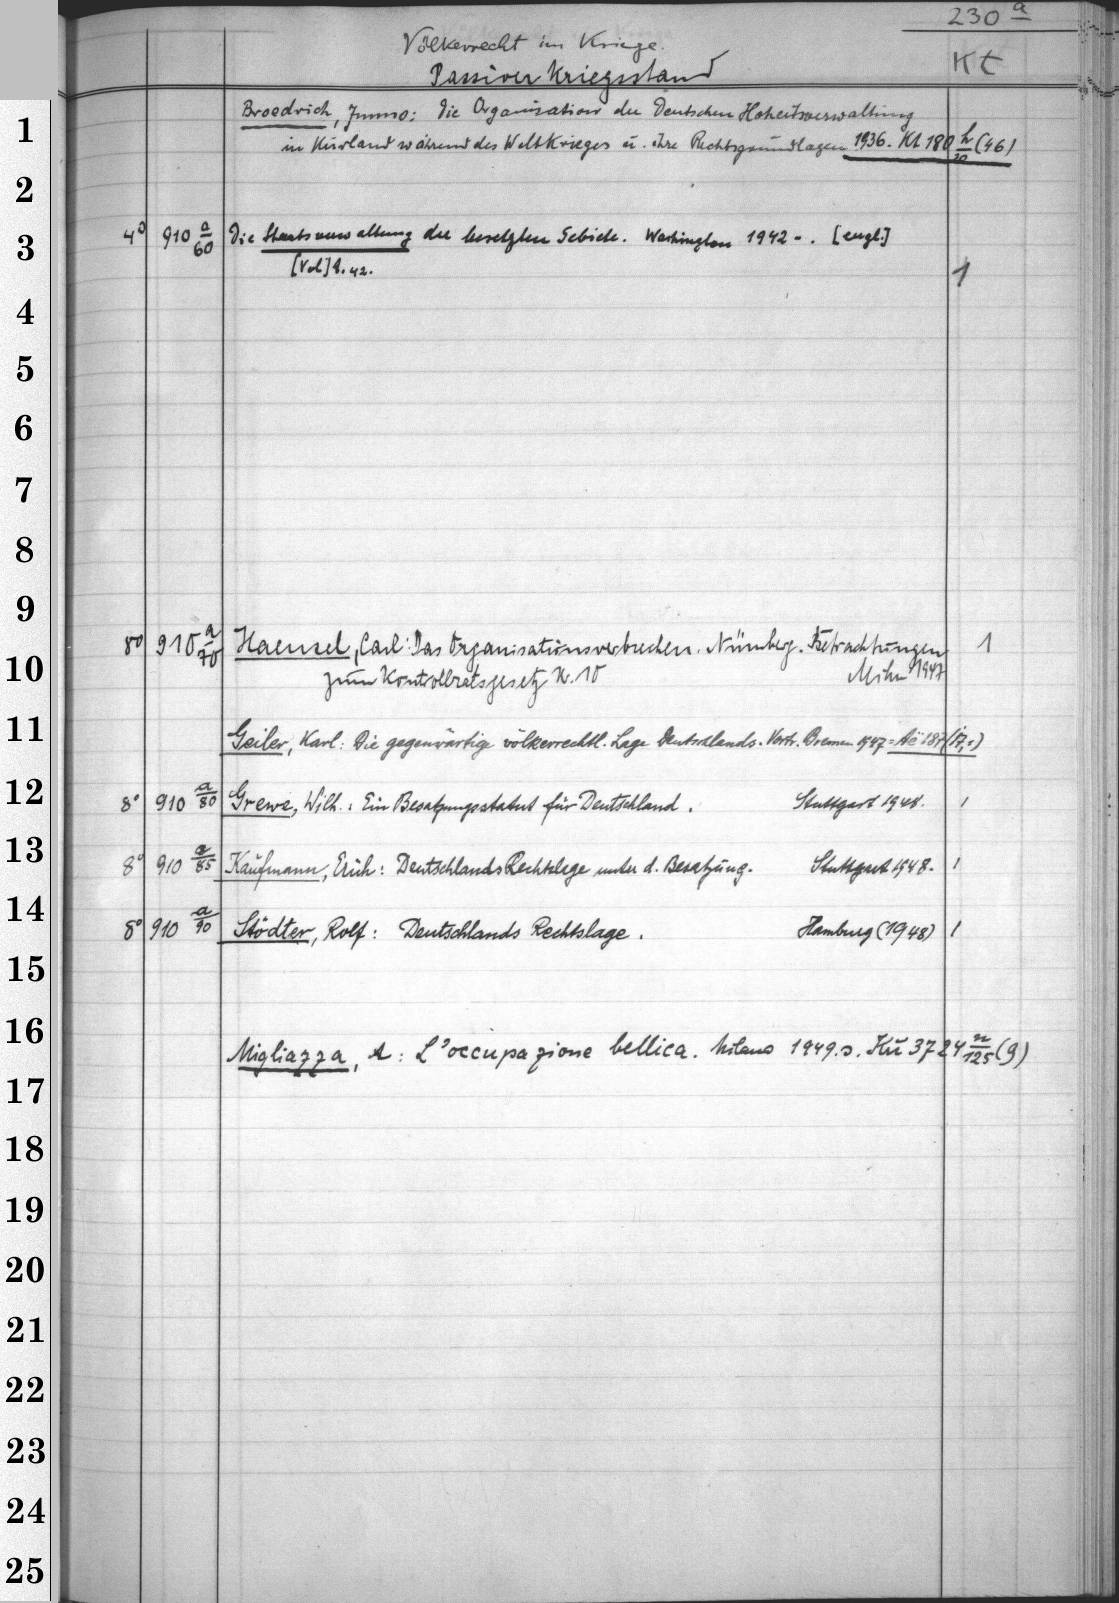 230 a
Völkerrecht im Kriege.
Passiver Kriegsstand
Kt
1 Broedrich, Immo: Die Organisation der Deutschen Hoheitsverwaltung
in Kurland während des Weltkrieges u. ihre Rechtsgrundlagen 1936. Kt 180 h/20 (46)
2
3 4° 910 a/60 Die Staatsverwaltung der besetzten Gebiete. Washington 1942 - . [engl.]
[Vol] 1. 42. 1
4
5
6
7
8
9
8° 910 a/70 Haensel, Carl: Das Organisationsverbrechen. Nürnberg. Betrachtungen 1
10 zum Kontrollratsgesetz Nr. 10 Mchn 1947
11 Geiler, Karl: Die gegenwärtige völkerrechtl. Lage Deutschlands. Vortr. Bremen 1947 = Ae 187 (17,1)
12 8° 910 a/80 Grewe, Wilh.: Ein Besatzungsstatut für Deutschland. Stuttgart 1948. 1
13 8° 910 a/85 Kaufmann, Erich: Deutschlands Rechtslage unter d. Besatzung. Stuttgart 1948. 1
14 8° 910 a/90 Stödter, Rolf: Deutschlands Rechtslage. Hamburg (1948) 1
15
16 Migliazza, A: L'occupazione bellica. Milano 1949. s. Kü 3724 n/125 (9)
17
18
19
20
21
22
23
24
25